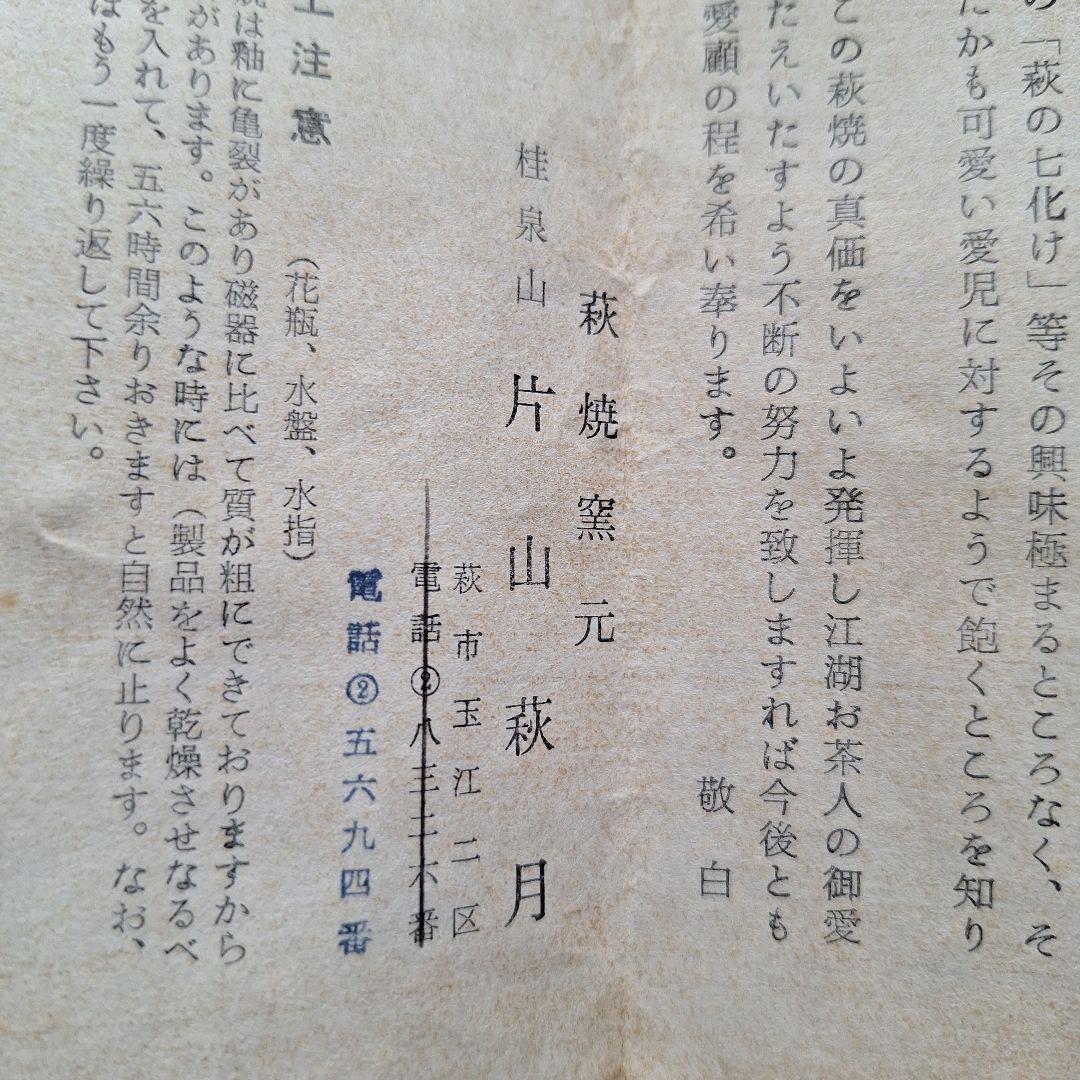 の「萩の七化け」等その興味極まるところなく、そ
たかも可愛い愛児に対するようで飽くところを知り
この萩焼の真価をいよいよ発揮し江湖お茶人の御愛
たえいたすよう不断の努力を致しますれば今後とも
愛顧の程を希い奉ります。
敬白
萩焼窯元
桂泉山 片山萩月
萩市玉江二区
電話②八三三六番
電話②五六九四番
注意
(花瓶、水盤、水指)
は釉に亀裂があり磁器に比べて質が粗にできておりますから
があります。このような時には(製品をよく乾燥させなるべ
を入れて、五六時間余りおきますと自然に止ります。なお、
はもう一度繰り返して下さい。